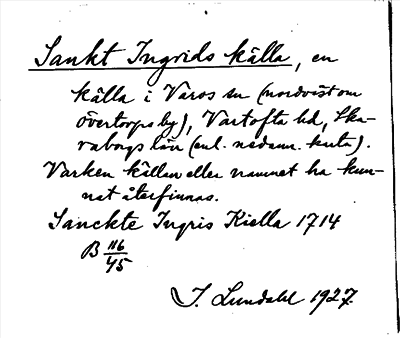 Sankt Ingrids källa, en
källa i Varos sn (nordväst om
Övertorps by), Vartofta hd, Ska-
raborgs län (enl. nedann. karta).
Varken källan eller namnet ha kun-
nat återfinnas.
Sanckte Ingris Kiella 1714
B 116/45
J. Lundahl 1927.